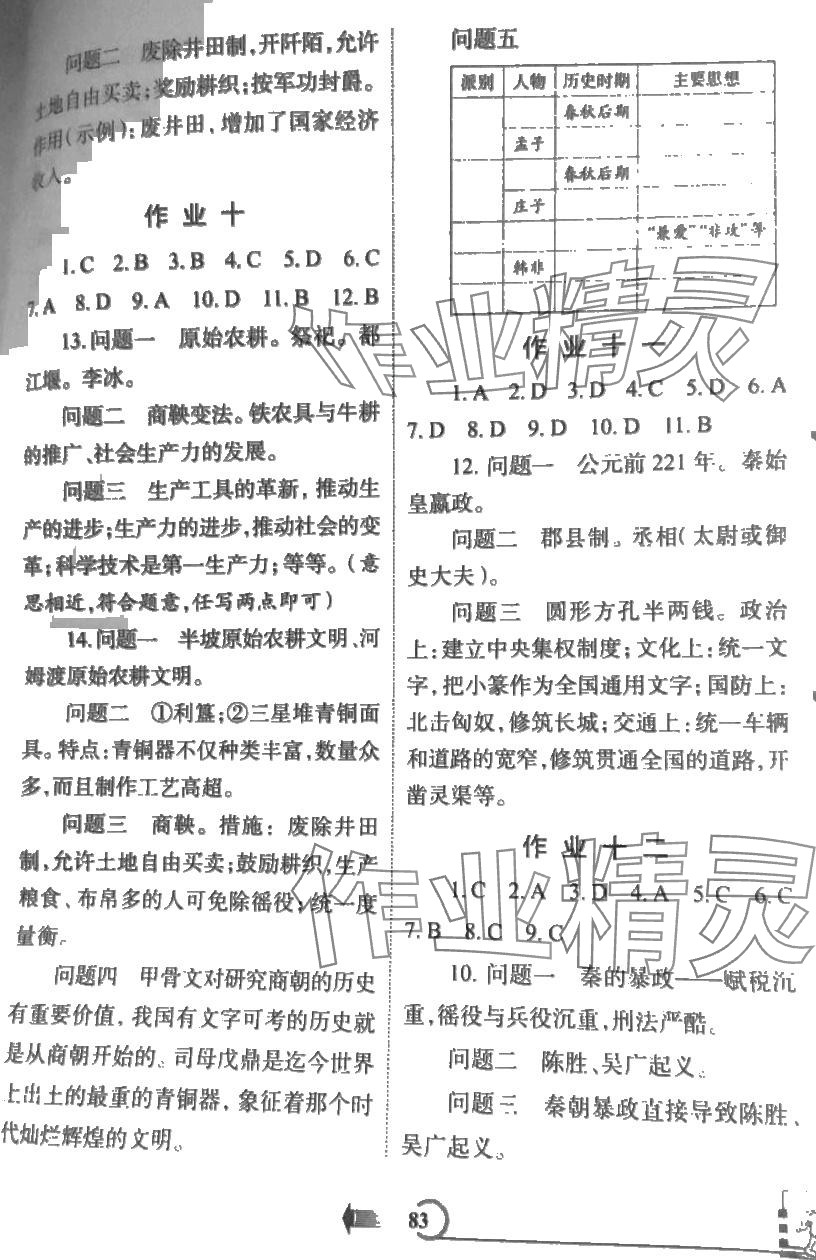 问题二 废除井田制,开阡陌,允许
土地自由买卖;奖励耕织;按军功封爵。
作用(示例):废井田,增加了国家经济
收入。
作业十
1.C 2.B 3.B 4.C 5.D 6.C
7.A 8.D 9.A 10.D 11.B 12.B
13.问题一 原始农耕。祭祀。都
江堰。李冰。
问题二 商鞅变法。铁农具与牛耕
的推广、社会生产力的发展。
问题三 生产工具的革新,推动生
产的进步;生产力的进步,推动社会的变
革;科学技术是第一生产力;等等。(意
思相近,符合题意,任写两点即可)
14.问题一 半坡原始农耕文明、河
姆渡原始农耕文明。
问题二 ①利簋;②三星堆青铜面
具。特点:青铜器不仅种类丰富,数量众
多,而且制作工艺高超。
问题三 商鞅。措施:废除井田
制,允许土地自由买卖;鼓励耕织,生产
粮食、布帛多的人可免除徭役;统一度
量衡。
问题四 甲骨文对研究商朝的历史
有重要价值,我国有文字可考的历史就
是从商朝开始的。司母戊鼎是迄今世界
上出土的最重的青铜器,象征着那个时
代灿烂辉煌的文明。
问题五
派别 人物 历史时期 主要思想
春秋后期
孟子
春秋后期
庄子
“兼爱”“非攻”等
韩非
作业十一
1.A 2.D 3.D 4.C 5.D 6.A
7.D 8.D 9.D 10.D 11.B
12.问题一 公元前221年。秦始
皇嬴政。
问题二 郡县制。丞相(太尉或御
史大夫)。
问题三 圆形方孔半两钱。政治
上:建立中央集权制度;文化上:统一文
字,把小篆作为全国通用文字;国防上:
北击匈奴,修筑长城;交通上:统一车辆
和道路的宽窄,修筑贯通全国的道路,开
凿灵渠等。
作业十二
1.C 2.A 3.D 4.A 5.C 6.C
7.B 8.C 9.C
10.问题一 秦的暴政——赋税沉
重,徭役与兵役沉重,刑法严酷。
问题二 陈胜、吴广起义。
问题三 秦朝暴政直接导致陈胜、
吴广起义。
83
作业精灵
作业精灵